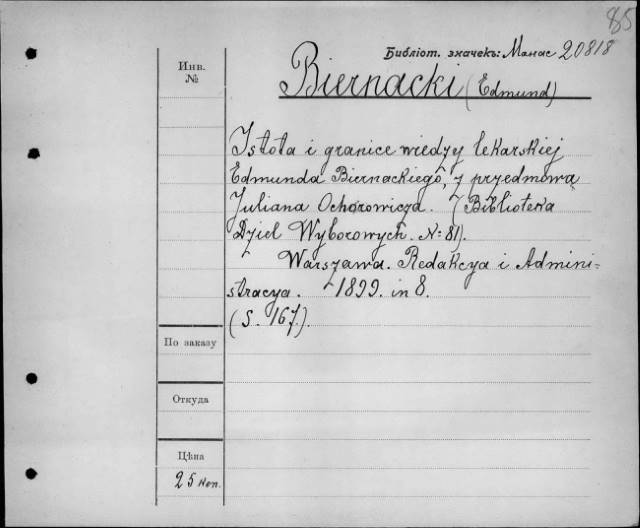 85
Библіот. значекъ: Манас 20818
Инв.
№
Biernacki (Edmund)
Istota i granice wiedzy lekarskiej
Edmunda Biernackiego, z przedmową
Juliana Ochorowicza. (Biblioteka
Dzieł Wyborowych. №: 81).
Warszawa. Redakcya i Admini-
stracya. 1899. in 8.
(S. 167.).
По заказу
Откуда
Цѣна
25 коп.